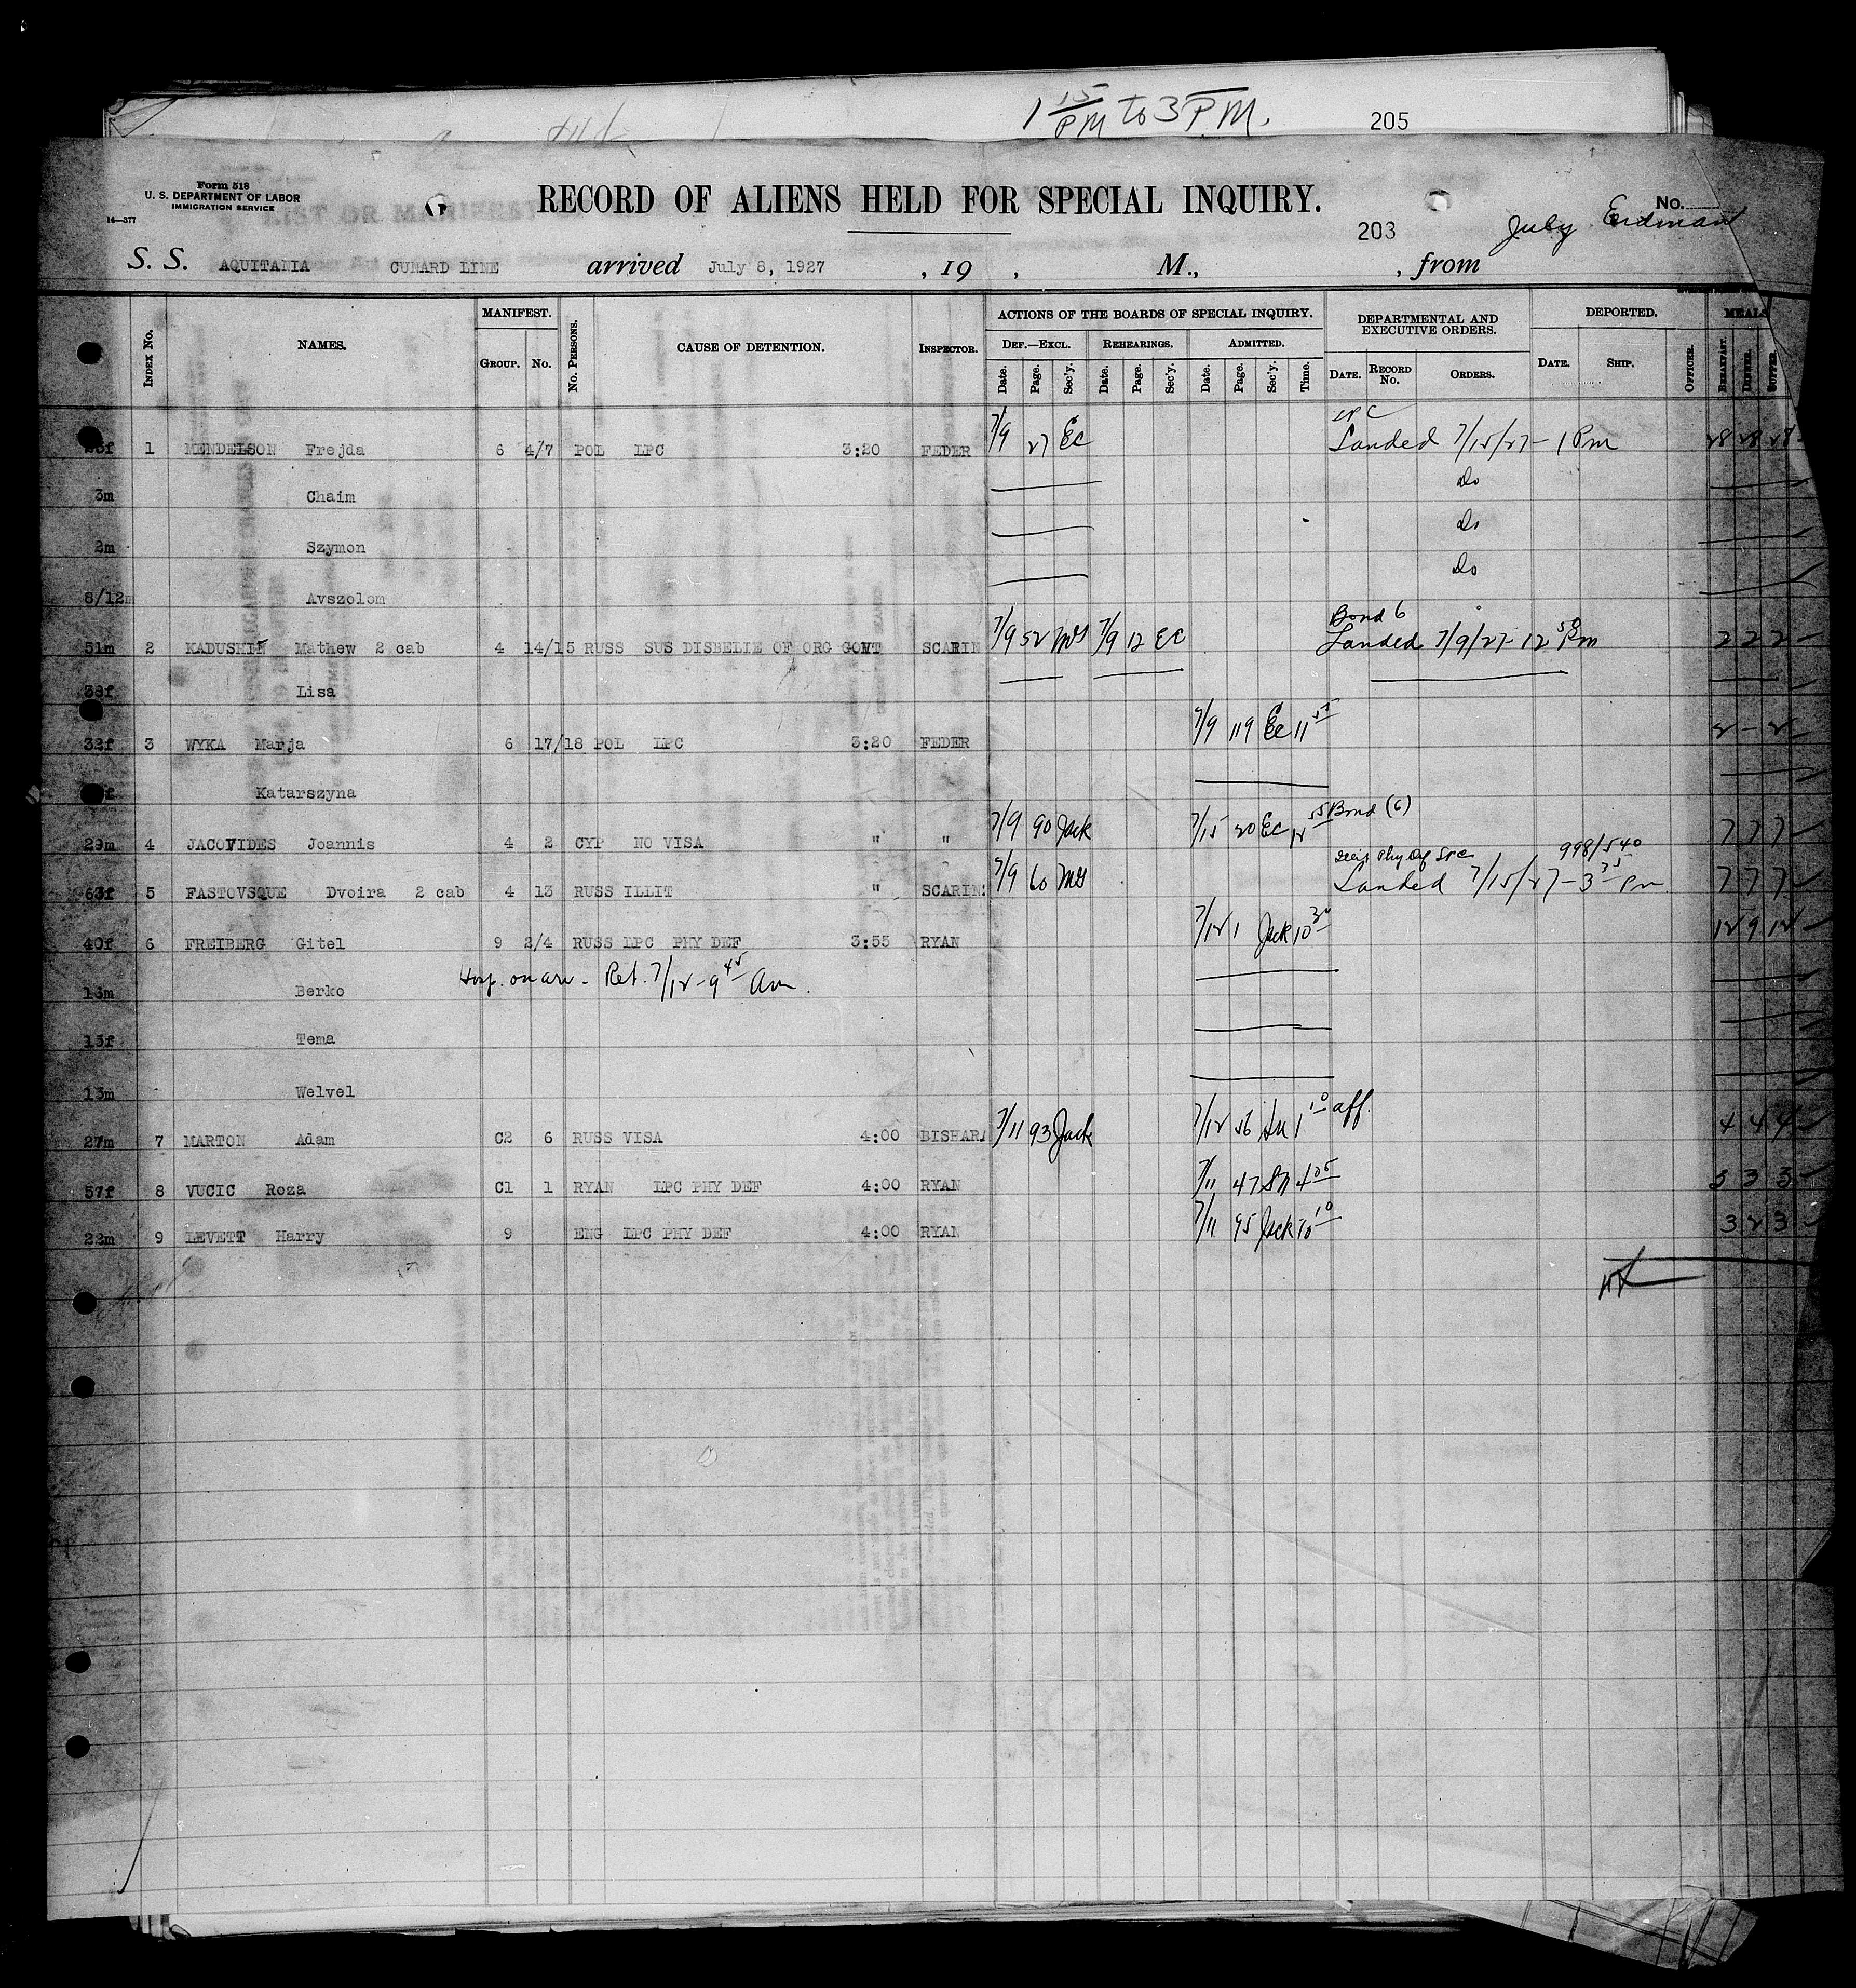 1 15/PM to 3 P.M.
205
Form 518
U. S. DEPARTMENT OF LABOR
IMMIGRATION SERVICE
14—377
RECORD OF ALIENS HELD FOR SPECIAL INQUIRY.
No.
203
July Erdman
S. S. AQUITANIA CUNARD LINE arrived July 8, 1927 , 19 , M., , from
Index No. NAMES. MANIFEST. Group. No. No. Persons. CAUSE OF DETENTION. Inspector. ACTIONS OF THE BOARDS OF SPECIAL INQUIRY. DEPARTMENTAL AND EXECUTIVE ORDERS. DEPORTED. MEALS
Def.—Excl. Rehearings. Admitted.
Date. Page. Sec'y. Date. Page. Sec'y. Date. Page. Sec'y. Time. Date. Record No. Orders. Date. Ship. Officer. Breakfast. Dinner. Supper.
1 MENDELSON Frejda 6 4/7 POL LPC 3:20 FEDER 7/9 27 EC LPC Landed 7/15/27 - 1 Pm
3m Chaim Do
2m Szymon Do
8/12m Avszolom Do
51m 2 KADUSHIN Mathew 2 cab 4 14/15 RUSS SUS DISBELIE OF ORG GOVT SCARIN 7/9 52 MG 7/9 12 EC Bond 6 Landed 7/9/27 - 12 50 Pm 2 2 2
38f Lisa
32f 3 WYKA Marja 6 17/18 POL LPC 3:20 FEDER 7/9 119 EC 11 55 2 - 2
Katarszyna
29m 4 JACOVIDES Joannis 4 2 CYP NO VISA " " 7/9 90 Jack 7/15 20 EC 12 55 Bond (6) 7 7 7
63f 5 FASTOVSQUE Dvoira 2 cab 4 13 RUSS ILLIT " SCARIN 7/9 60 MG 998/540 Landed 7/15/27 - 3 35 Pm 7 7 7
40f 6 FREIBERG Gitel 9 2/4 RUSS LPC PHY DEF 3:55 RYAN 7/12 1 Jack 10 30 12 9 12
Hosp. on arr - Ret. 7/12 - 9 45 Am.
Berko
13f Tema
13m Welvel
27m 7 MARTON Adam C2 6 RUSS VISA 4:00 BISHARA 7/11 93 Jack 7/12 56 Sn 1 10 aff. 4 4 4
57f 8 VUCIC Roza C1 1 RYAN LPC PHY DEF 4:00 RYAN 7/11 47 Sn 4 05 3 3 3
22m 9 LEVETT Harry 9 ENG LPC PHY DEF 4:00 RYAN 7/11 95 Jack 10 10 3 2 3